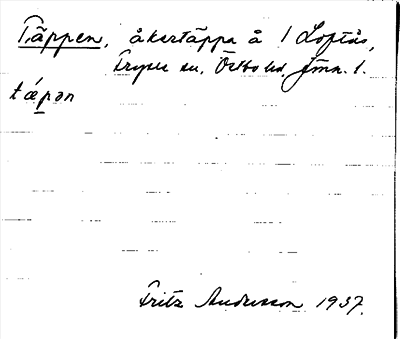 Täppen, åkertäppa å 1 Loftås,
Tryser sn. Östbo hd. Jönk. l.
tǽpən
Fritz Andersson 1937.